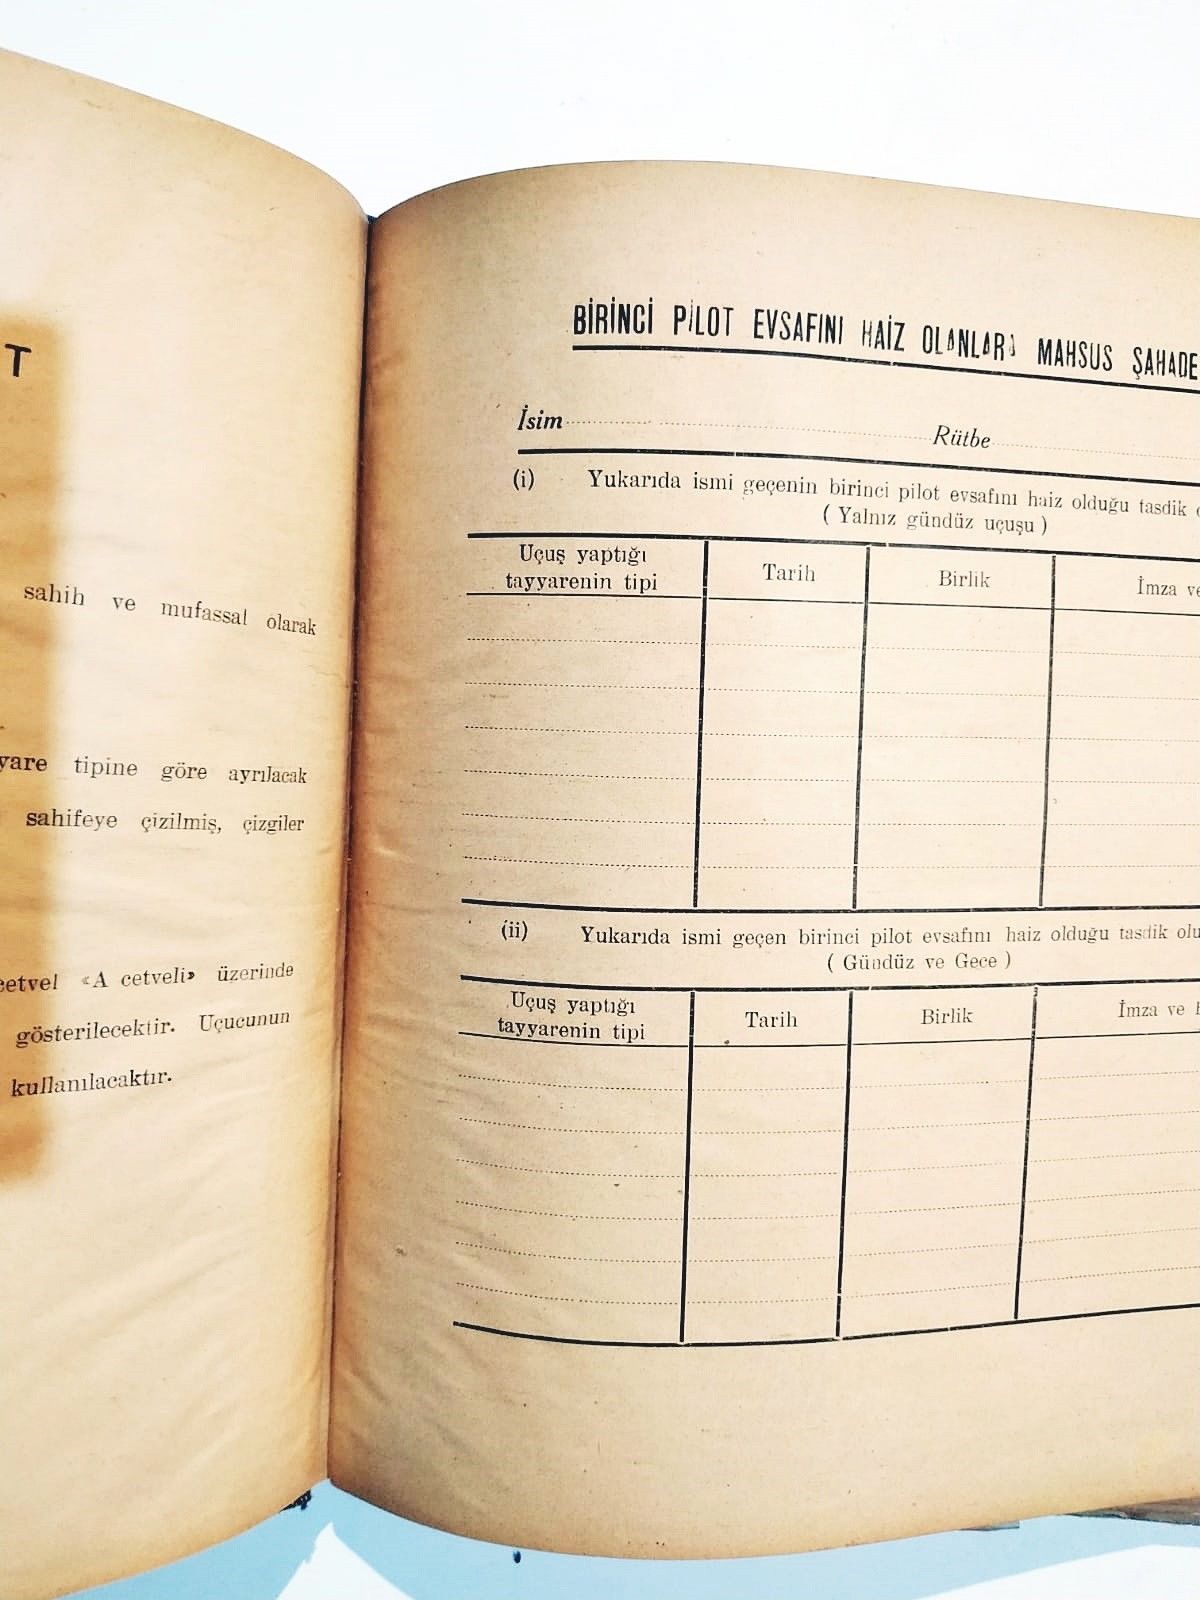 T
sahih ve mufassal olarak
yare tipine göre ayrılacak
sahifeye çizilmiş, çizgiler
cetvel «A cetveli» üzerinde
gösterilecektir. Uçucunun
kullanılacaktır.
BİRİNCİ PİLOT EVSAFINI HAİZ OLANLARA MAHSUS ŞAHADE
İsim Rütbe
(i) Yukarıda ismi geçenin birinci pilot evsafını haiz olduğu tasdik
( Yalnız gündüz uçuşu )
Uçuş yaptığı
tayyarenin tipi
Tarih
Birlik
İmza ve
(ii) Yukarıda ismi geçen birinci pilot evsafını haiz olduğu tasdik olu
( Gündüz ve Gece )
Uçuş yaptığı
tayyarenin tipi
Tarih
Birlik
İmza ve